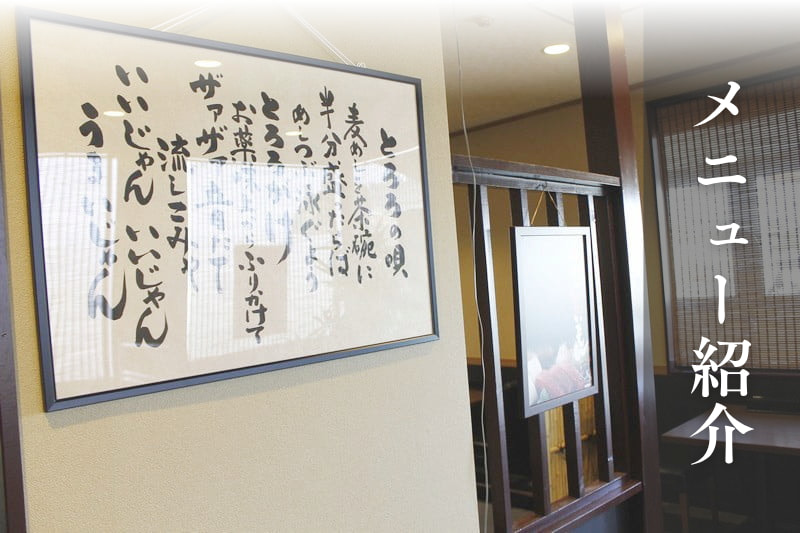 メニュー紹介
とろろの唄
麦めしを茶碗に
半分盛ったらば
めしつぶ泳ぐよう
とろろかけ
お薬味 ふりかけて
ザァザァ音たて
流しこみゃ
いいじゃん いいじゃん
うまいじゃん